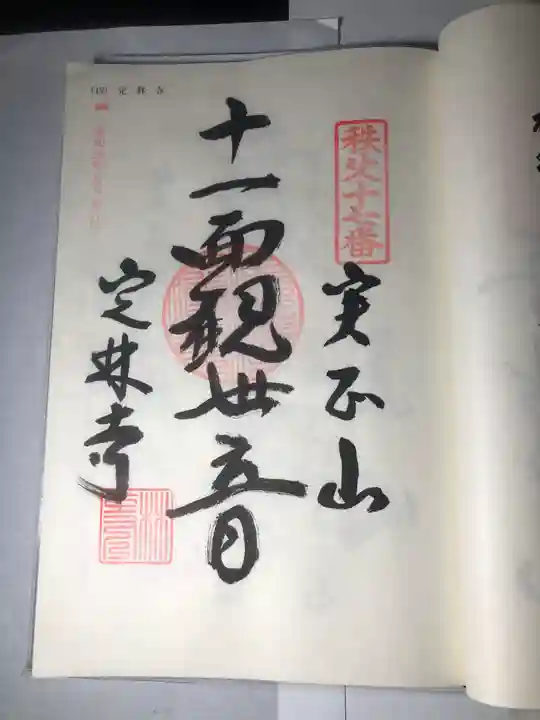 秩父十七番
実正山
十一面観世音
定林寺
定林寺